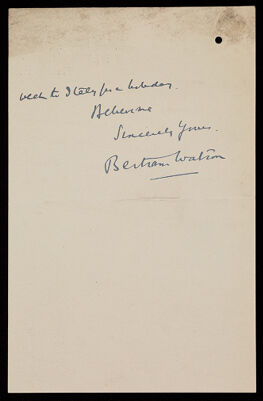 week to Italy for a holiday.
Believe me
Sincerely Yours.
Bertram Watson